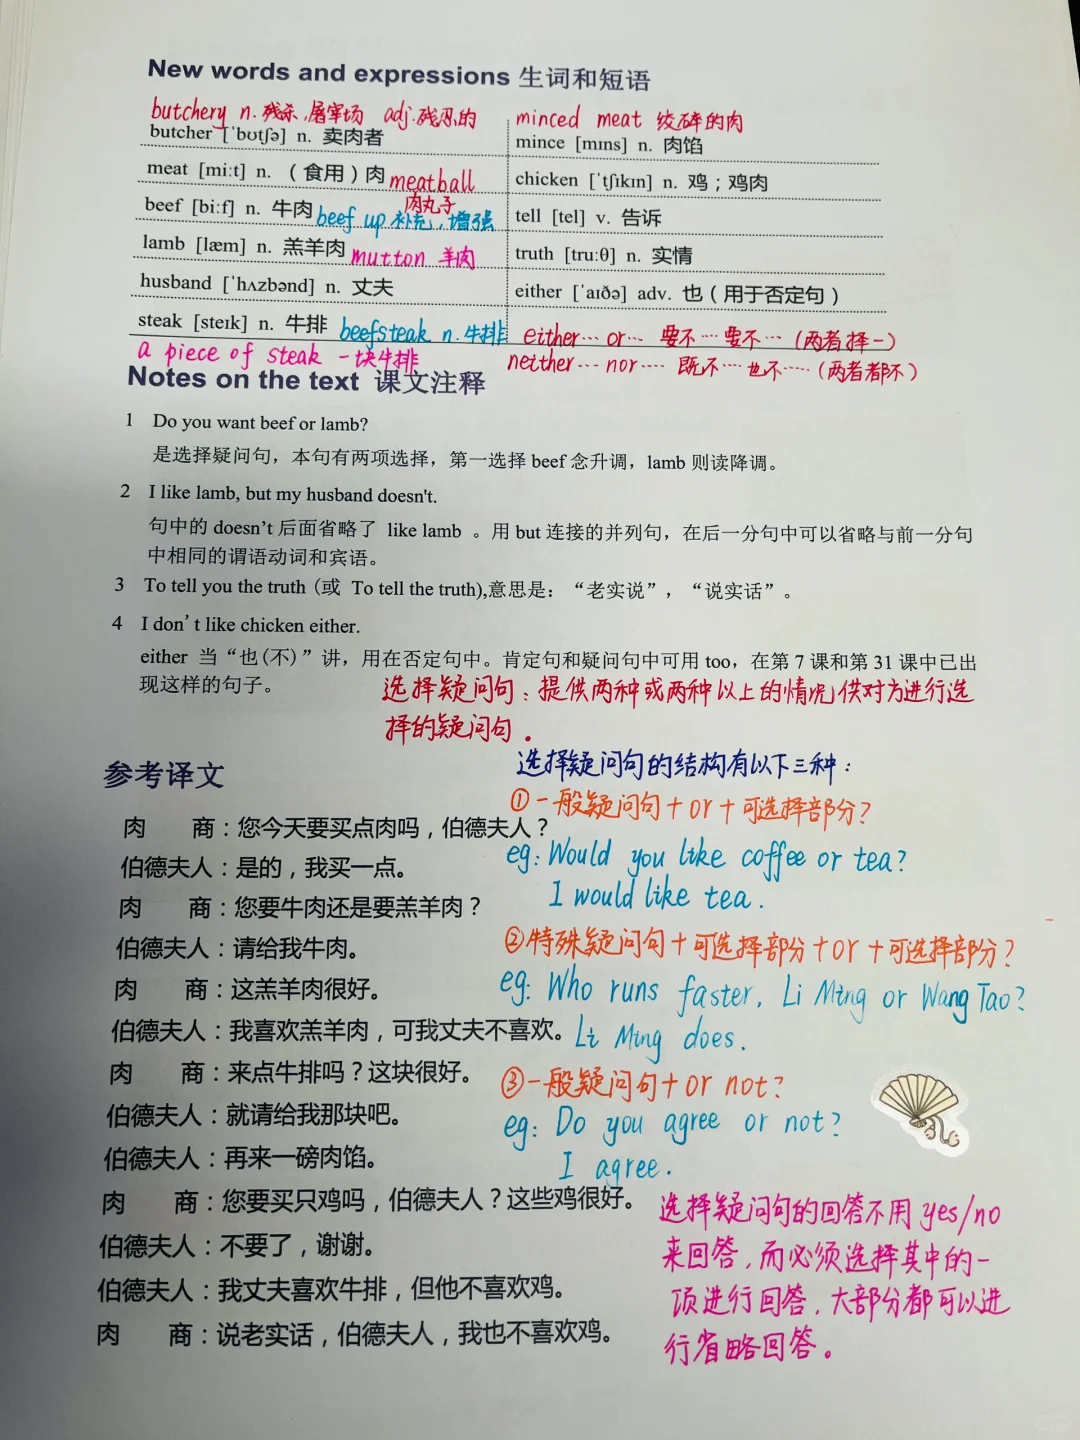 New words and expressions 生词和短语
butchery n. 残杀,屠宰场 adj.残忍的
minced meat 绞碎的肉
butcher [ˈbʊtʃə] n. 卖肉者
mince [mɪns] n. 肉馅
meat [miːt] n. （食用）肉 meatball
肉丸子
chicken [ˈtʃɪkɪn] n. 鸡；鸡肉
beef [biːf] n. 牛肉 beef up 补充,增强
tell [tel] v. 告诉
lamb [læm] n. 羔羊肉 mutton 羊肉
truth [truːθ] n. 实情
husband [ˈhʌzbənd] n. 丈夫
either [ˈaɪðə] adv. 也（用于否定句）
steak [steɪk] n. 牛排 beefsteak n.牛排
either… or… 要不…要不…（两者择一）
a piece of steak 一块牛排
neither… nor…. 既不…也不…..（两者都不）
Notes on the text 课文注释
1 Do you want beef or lamb?
是选择疑问句，本句有两项选择，第一选择 beef 念升调，lamb 则读降调。
2 I like lamb, but my husband doesn't.
句中的 doesn't 后面省略了 like lamb 。用 but 连接的并列句，在后一分句中可以省略与前一分句
中相同的谓语动词和宾语。
3 To tell you the truth (或 To tell the truth),意思是：“老实说”，“说实话”。
4 I don't like chicken either.
either 当“也(不)”讲，用在否定句中。肯定句和疑问句中可用 too，在第 7 课和第 31 课中已出
现这样的句子。
选择疑问句：提供两种或两种以上的情况供对方进行选
择的疑问句。
选择疑问句的结构有以下三种：
①一般疑问句+or+可选择部分?
eg: Would you like coffee or tea?
I would like tea.
②特殊疑问句+可选择部分+or+可选择部分?
eg: Who runs faster, Li Ming or Wang Tao?
Li Ming does.
③一般疑问句+or not?
eg: Do you agree or not?
I agree.
选择疑问句的回答不用 yes/no
来回答,而必须选择其中的一
项进行回答,大部分都可以进
行省略回答。
参考译文
肉 商：您今天要买点肉吗，伯德夫人？
伯德夫人：是的，我买一点。
肉 商：您要牛肉还是要羔羊肉？
伯德夫人：请给我牛肉。
肉 商：这羔羊肉很好。
伯德夫人：我喜欢羔羊肉，可我丈夫不喜欢。
肉 商：来点牛排吗？这块很好。
伯德夫人：就请给我那块吧。
伯德夫人：再来一磅肉馅。
肉 商：您要买只鸡吗，伯德夫人？这些鸡很好。
伯德夫人：不要了，谢谢。
伯德夫人：我丈夫喜欢牛排，但他不喜欢鸡。
肉 商：说老实话，伯德夫人，我也不喜欢鸡。